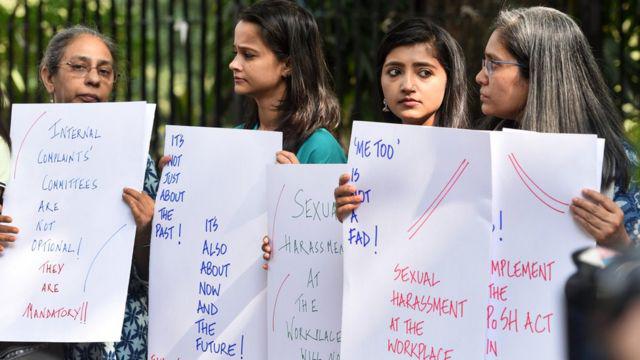 INTERNAL
COMPLAINTS'
COMMITTEES
ARE
NOT
OPTIONAL!
THEY
ARE
MANDATORY!!
ITS
NOT
JUST
ABOUT
THE
PAST!
ITS
ALSO
ABOUT
NOW
AND
THE
FUTURE!
SEXUAL
HARASSMENT
AT
THE
WORKPLACE
WILL NO
'ME TOO'
IS
NOT
A
FAD!
SEXUAL
HARASSMENT
AT THE
WORKPLACE
!
MPLEMENT
THE
PoSH ACT
IN